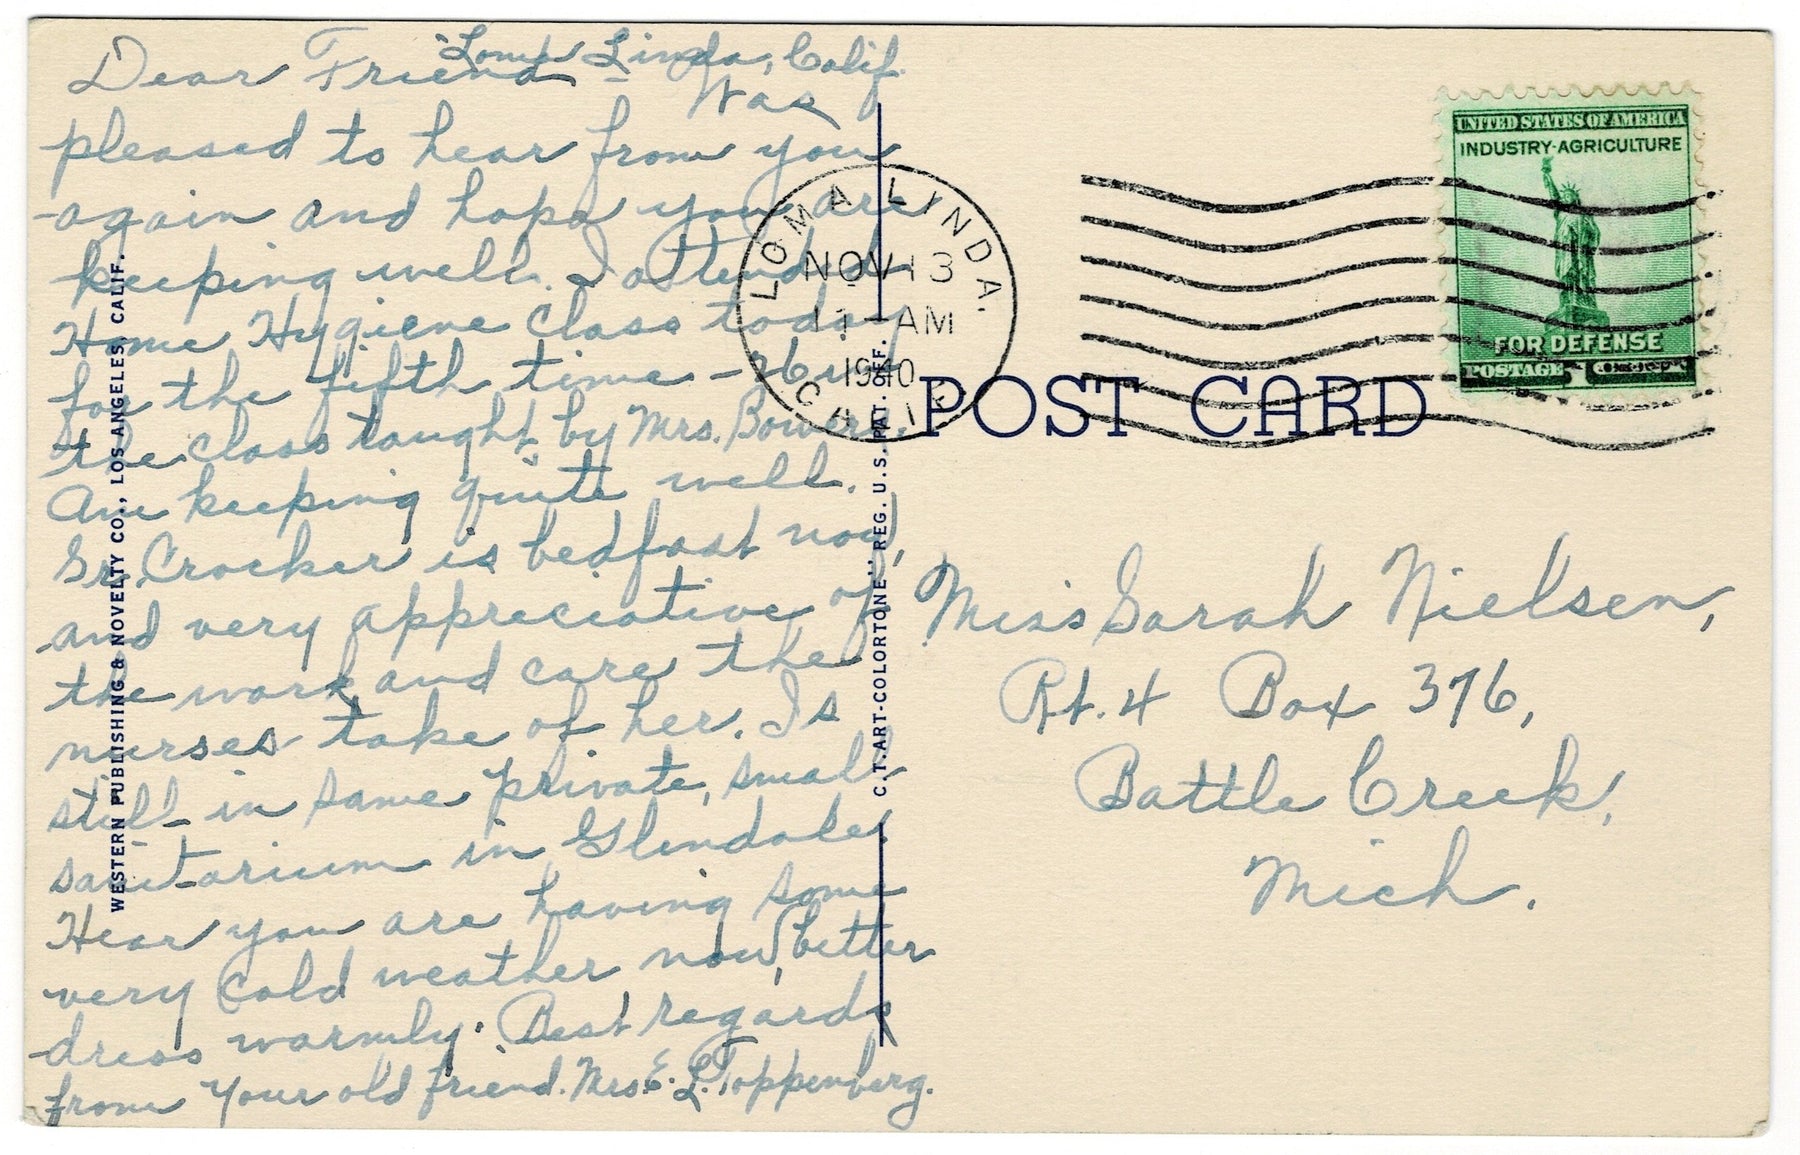 Loma Linda, Calif.
Dear Friend - Was
pleased to hear from you
again and hope you are
keeping well. I attended
Home Hygiene class today
for the fifth time - 26 in
the class taught by Mrs. Bowers.
Am keeping quite well.
Sr. Crocker is bedfast now,
and very appreciative of
the work and care the
nurses take of her. Is
still in same private, small
sanitarium in Glendale.
Hear you are having some
very cold weather, now, better
dress warmly. Best regards
from your old friend. Mrs. E. L. Toppenberg.
WESTERN PUBLISHING & NOVELTY CO., LOS ANGELES, CALIF.
C.T. ART-COLORTONE" REG. U.S. PAT. OFF.
LOMA LINDA.
NOV 13
11 - AM
1940
CALIF.
UNITED STATES OF AMERICA
INDUSTRY-AGRICULTURE
FOR DEFENSE
POSTAGE 1
POST CARD
Miss Sarah Nielsen,
Rt. 4 Box 376,
Battle Creek,
Mich.